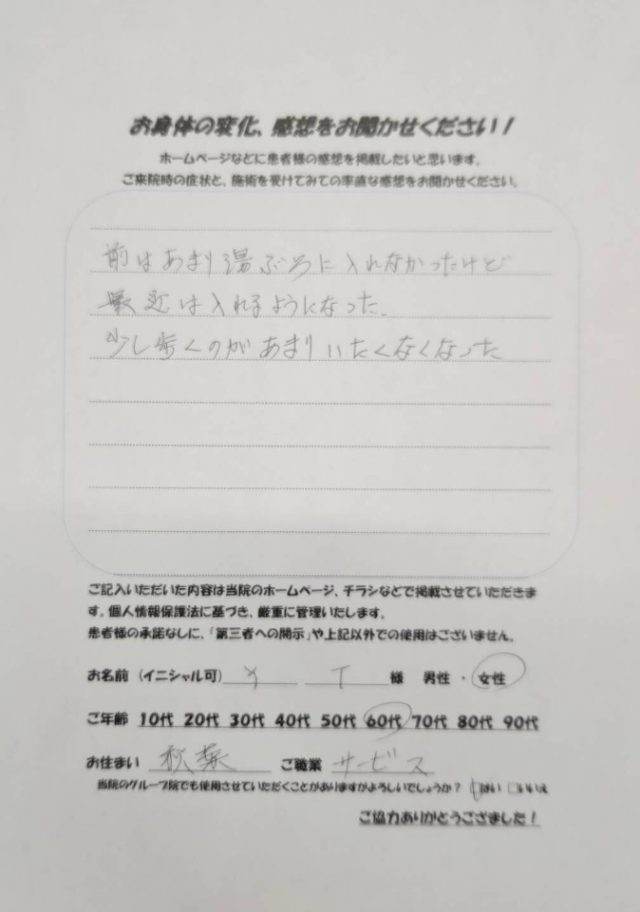 お身体の変化、感想をお聞かせください！
ホームページなどに患者様の感想を掲載したいと思います。
ご来院時の症状と、施術を受けてみての率直な感想をお聞かせください。
前はあまり湯ぶろに入れなかったけど
最近は入れるようになった。
少し歩くのがあまりいたくなくなった
ご記入いただいた内容は当院のホームページ、チラシなどで掲載させていただきま
す。個人情報保護法に基づき、厳重に管理いたします。
患者様の承諾なしに、「第三者への開示」や上記以外での使用はございません。
お名前（イニシャル可） Y T 様 男性 ・ 女性
ご年齢 10代 20代 30代 40代 50代 60代 70代 80代 90代
お住まい 秋葉 ご職業 サービス
当院のグループ院でも使用させていただくことがありますがよろしいでしょうか？ □はい □いいえ
ご協力ありがとうござました！